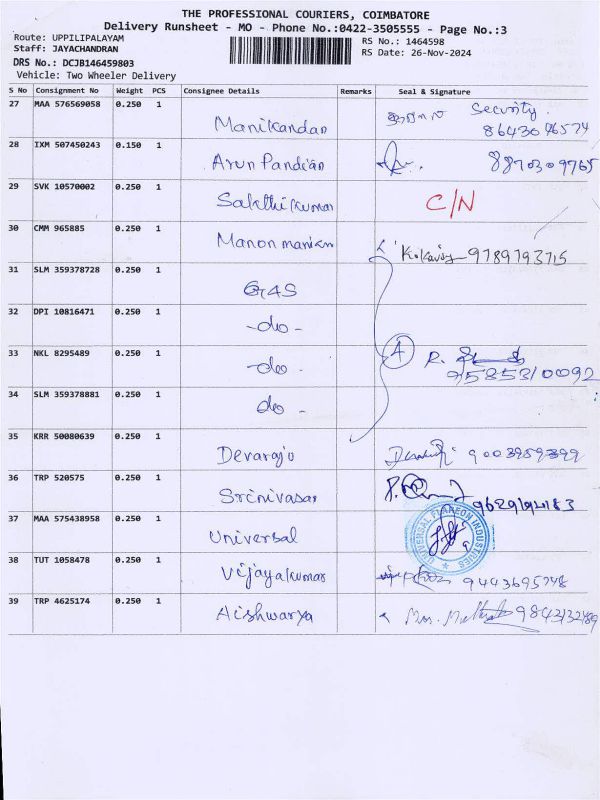 THE PROFESSIONAL COURIERS, COIMBATORE
Delivery Runsheet - MO - Phone No.:0422-3505555 - Page No.:3
Route: UPPILIPALAYAM RS No.: 1464598
Staff: JAYACHANDRAN RS Date: 26-Nov-2024
DRS No.: DCJB146459803
Vehicle: Two Wheeler Delivery
S No Consignment No Weight PCS Consignee Details Remarks Seal & Signature
27 MAA 576569058 0.250 1 Manikandan Security 8643046574
28 IXM 507450243 0.150 1 Arun Pandian 8870309765
29 SVK 10570002 0.250 1 Sakthikumar C/N
30 CMM 965885 0.250 1 9789793715
31 SLM 359378728 0.250 1 GAS
32 DPI 10816471 0.250 1 -do-
33 NKL 8295489 0.250 1 -do- A R. 9585310092
34 SLM 359378881 0.250 1 do -
35 KRR 50080639 0.250 1 Devaraju 9003959399
36 TRP 520575 0.250 1 Srinivasan
37 MAA 575438958 0.250 1 Universal UNIVERSAL FLAREON INDUSTRIES
38 TUT 1058478 0.250 1 Vijayakumar 9443695748
39 TRP 4625174 0.250 1 Aishwarya